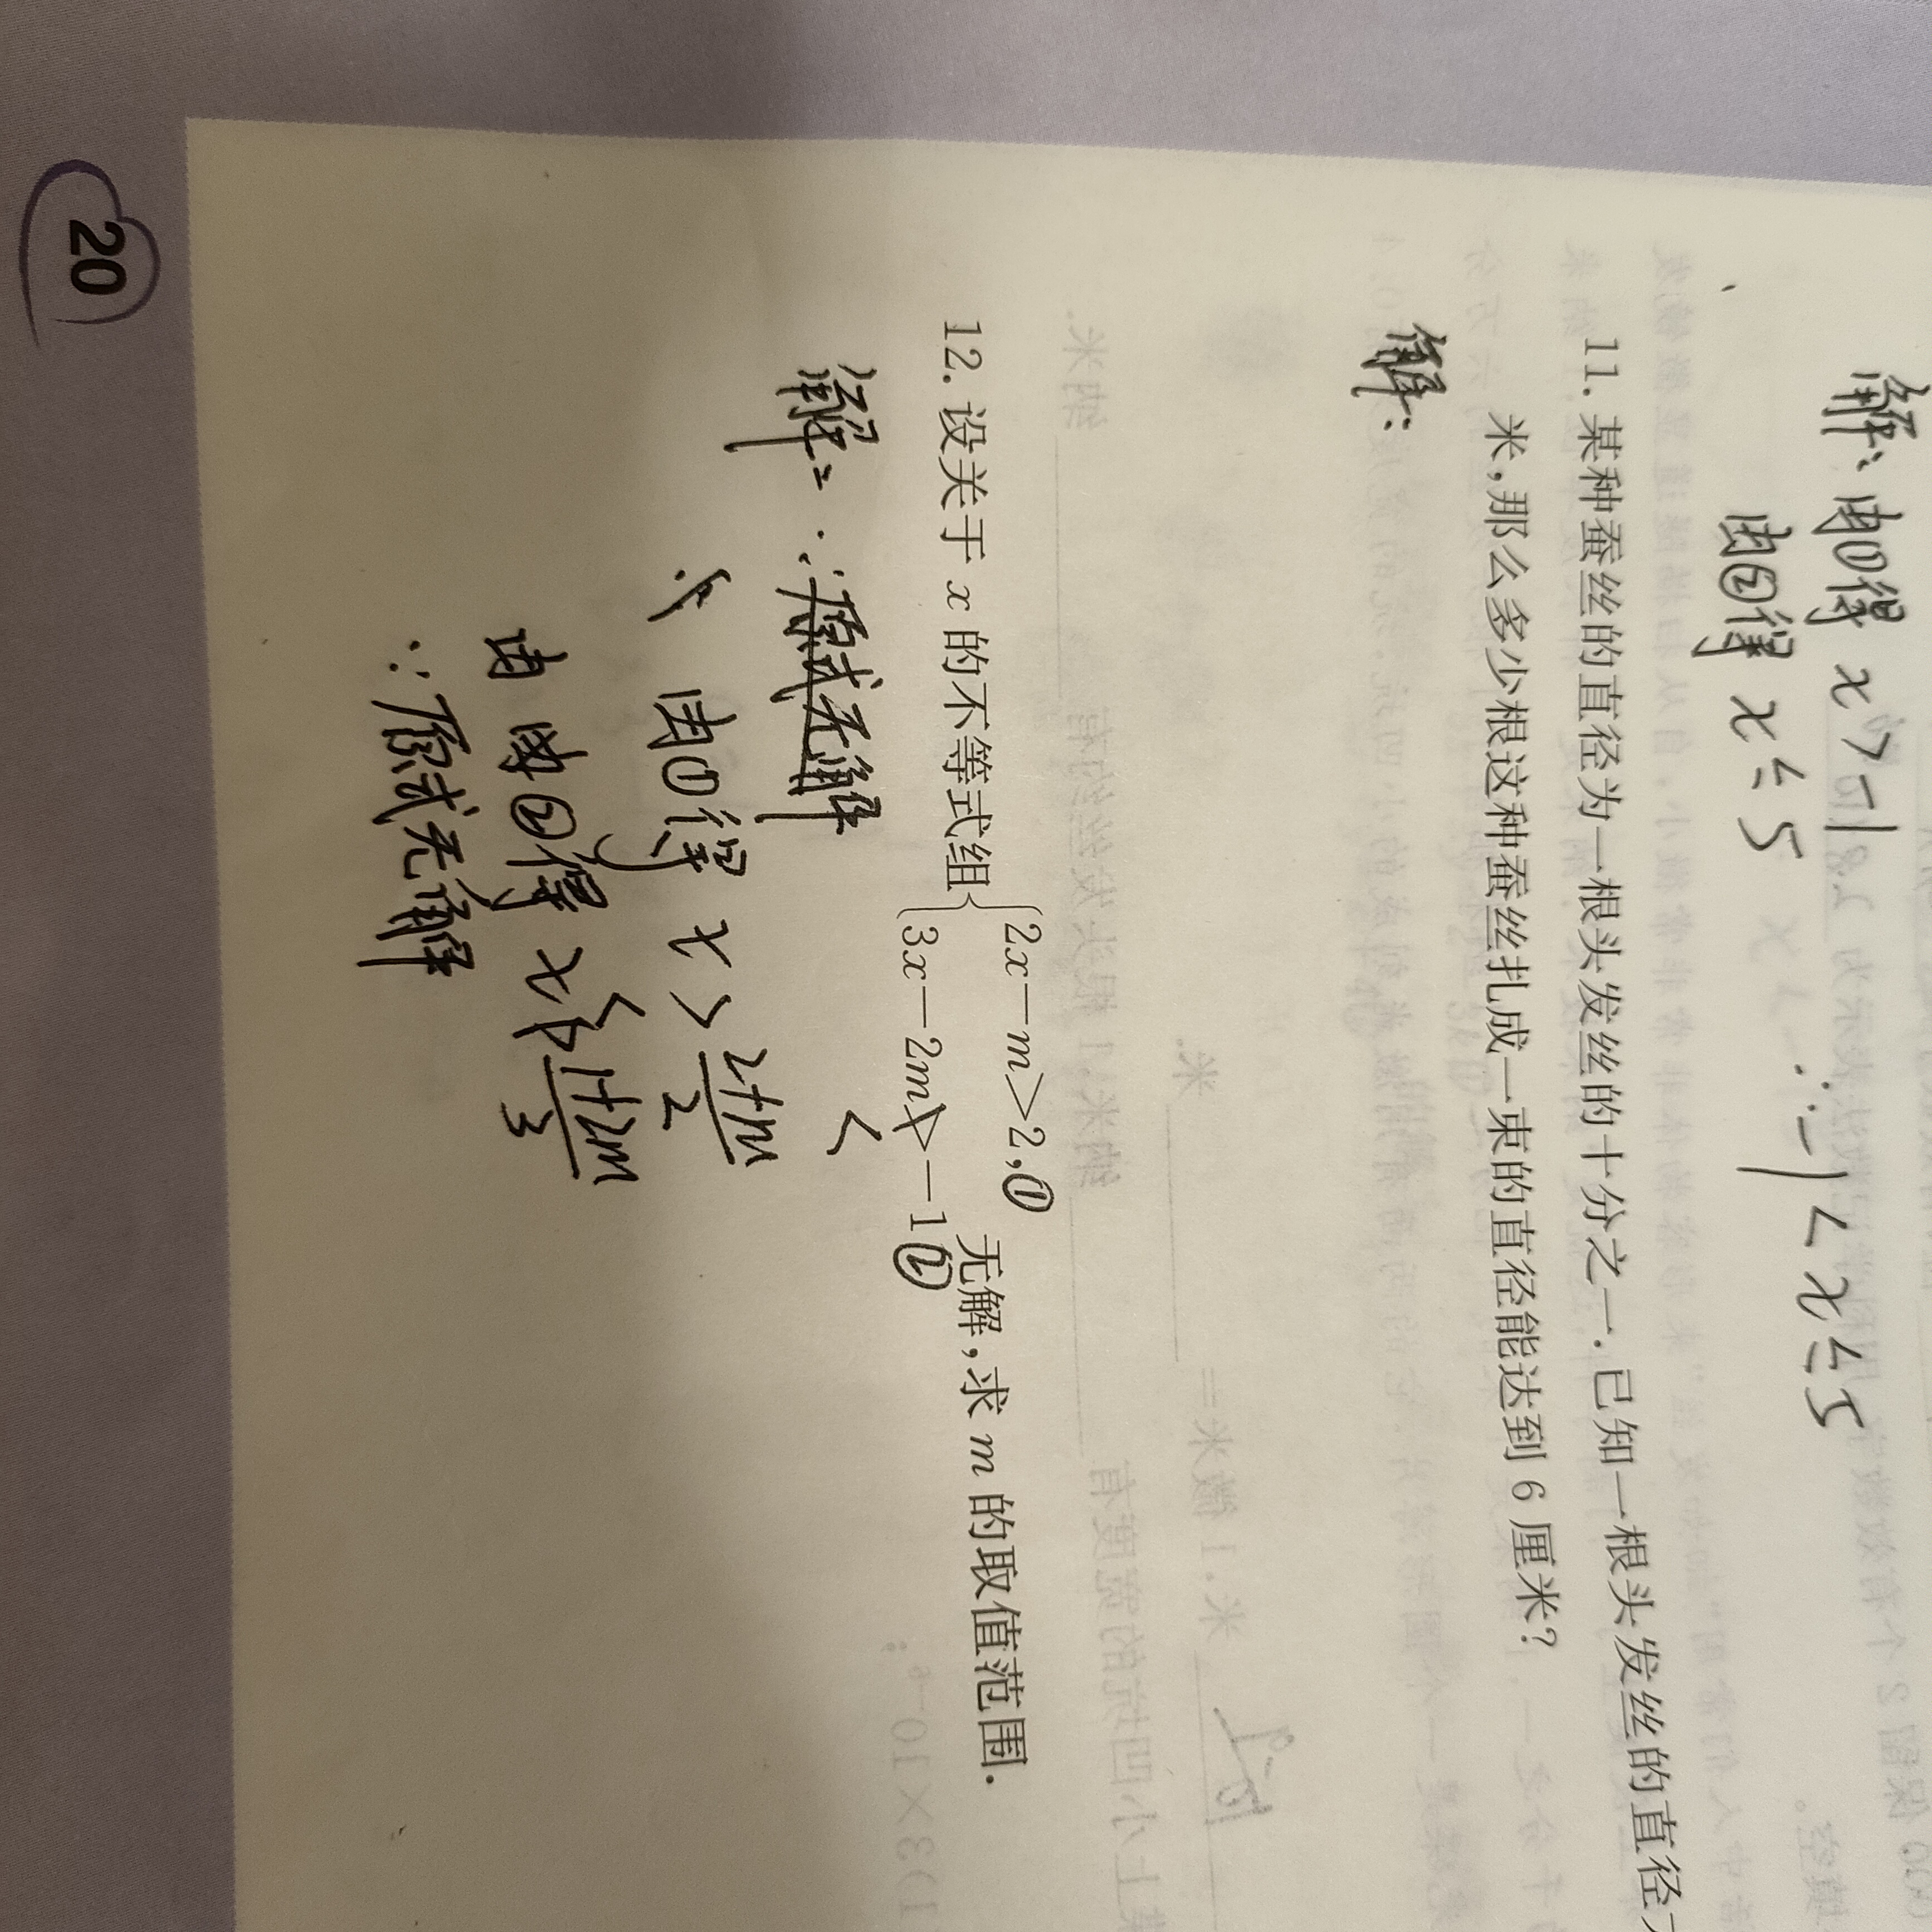 解: 由①得 x>-1
由②得 x≤5 ∴-1<x≤5
11. 某种蚕丝的直径为一根头发丝的十分之一. 已知一根头发丝的直径
米,那么多少根这种蚕丝扎成一束的直径能达到 6 厘米?
解:
12. 设关于 x 的不等式组{2x-m>2,① 3x-2m>-1② 无解,求 m 的取值范围.
<
解: ∵原式无解
由①得 x>2+m/2
由 由②得 x<-1+2m/3
∵原式无解
20